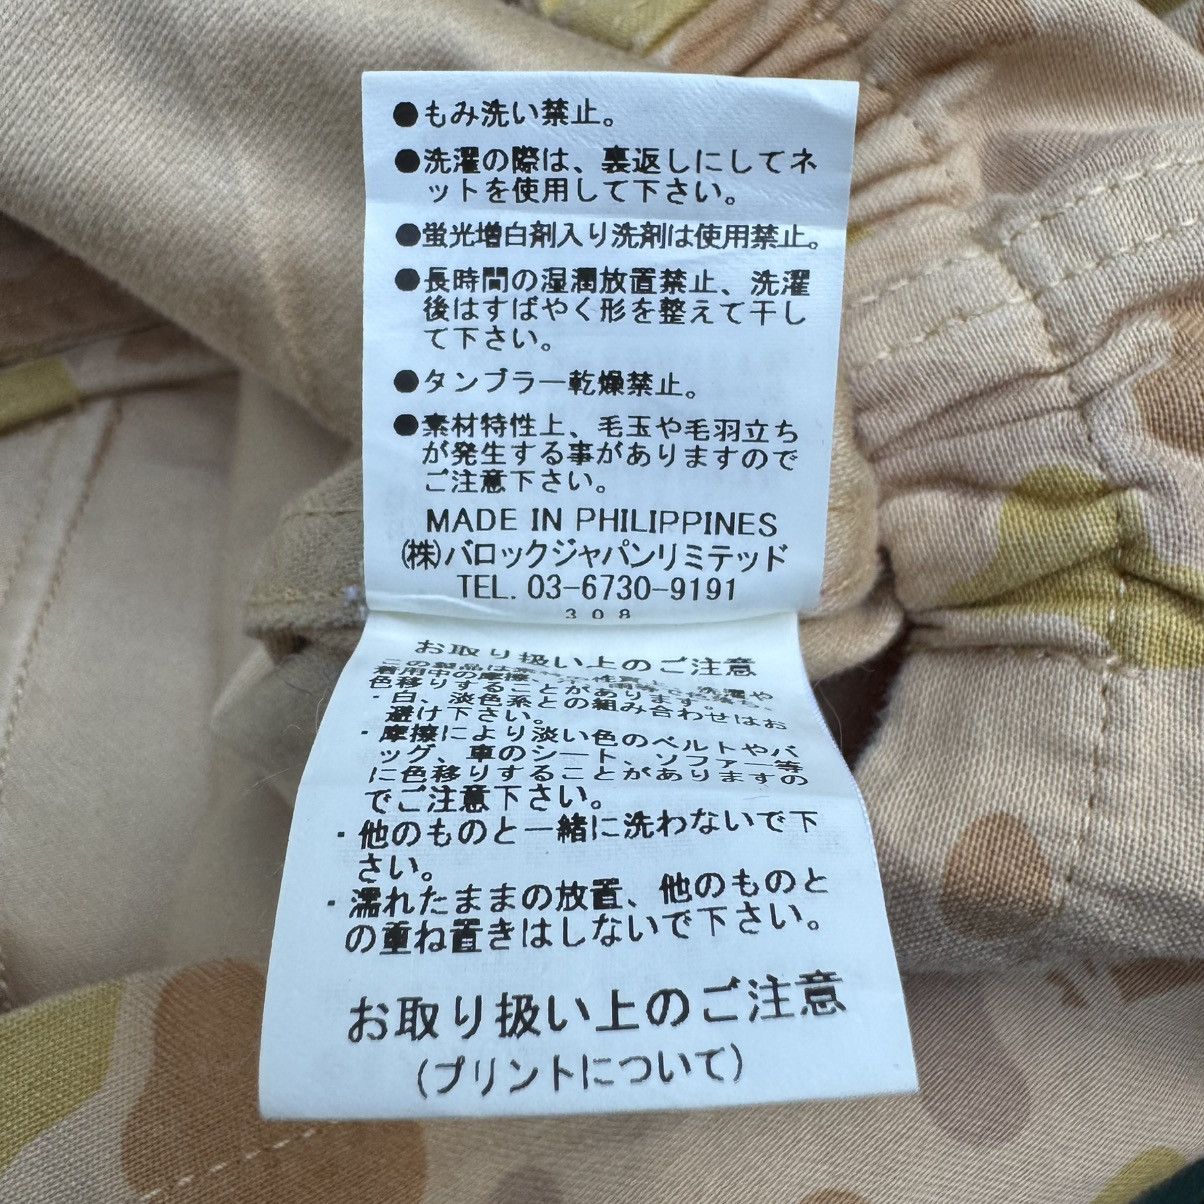 ●もみ洗い禁止。
●洗濯の際は、裏返しにしてネ
ットを使用して下さい。
●蛍光増白剤入り洗剤は使用禁止。
●長時間の湿潤放置禁止、洗濯
後はすばやく形を整えて干し
て下さい。
●タンブラー乾燥禁止。
●素材特性上、毛玉や毛羽立ち
が発生する事がありますので
ご注意下さい。
MADE IN PHILIPPINES
(株)バロックジャパンリミテッド
TEL. 03-6730-9191
308
お取り扱い上のご注意
この製品は素材の性質上、洗濯や
着用中の摩擦、
色移りすることがあります。
・白、淡色系との組み合わせはお
避け下さい。
・摩擦により淡い色のベルトやバ
ッグ、車のシート、ソファー等
に色移りすることがありますの
でご注意下さい。
・他のものと一緒に洗わないで下
さい。
・濡れたままの放置、他のものと
の重ね置きはしないで下さい。
お取り扱い上のご注意
(プリントについて)